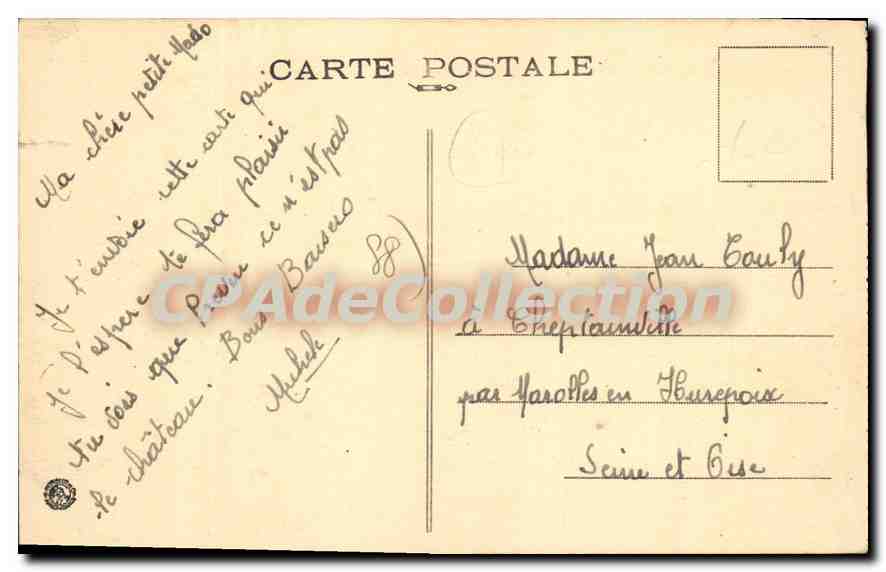 CARTE POSTALE
Ma chère petite Mado
Je t'envoie cette carte qui
je l'espère te fera plaisir
tu vois que ce n'est pas
le château. Bons Baisers
88
Madame Jean Touly
à Cheptainville
par Marolles en Hurepoix
Seine et Oise
CPAdeCollection